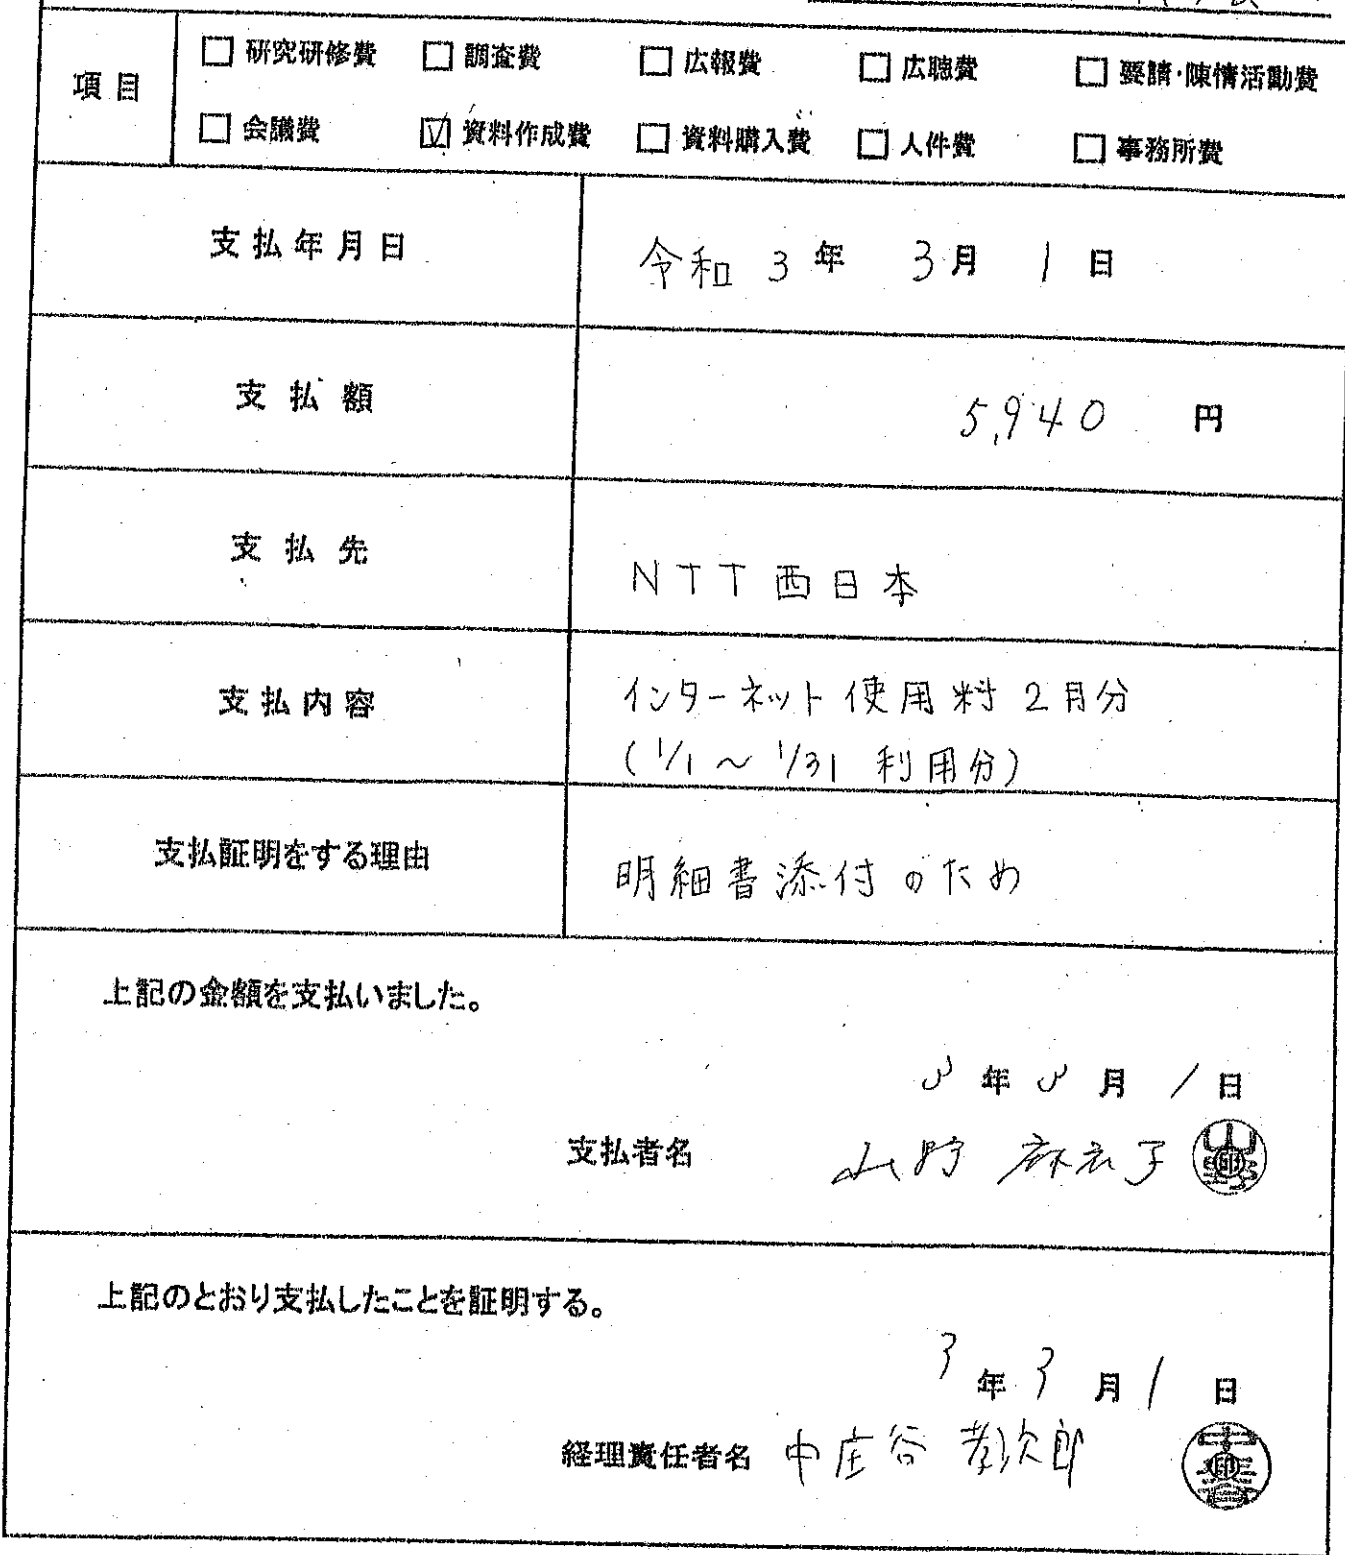 項目
□ 研究研修費 □ 調査費 □ 広報費 □ 広聴費 □ 要請・陳情活動費
□ 会議費 ☑ 資料作成費 □ 資料購入費 □ 人件費 □ 事務所費
支払年月日 令和 3 年 3 月 1 日
支払額 5,940 円
支払先 NTT西日本
支払内容 インターネット使用料 2月分
(1/1 ~ 1/31 利用分)
支払証明をする理由 明細書添付のため
上記の金額を支払いました。
3 年 3 月 1 日
支払者名 山野 麻衣子
上記のとおり支払したことを証明する。
3 年 3 月 1 日
経理責任者名 中庄谷 孝次郎